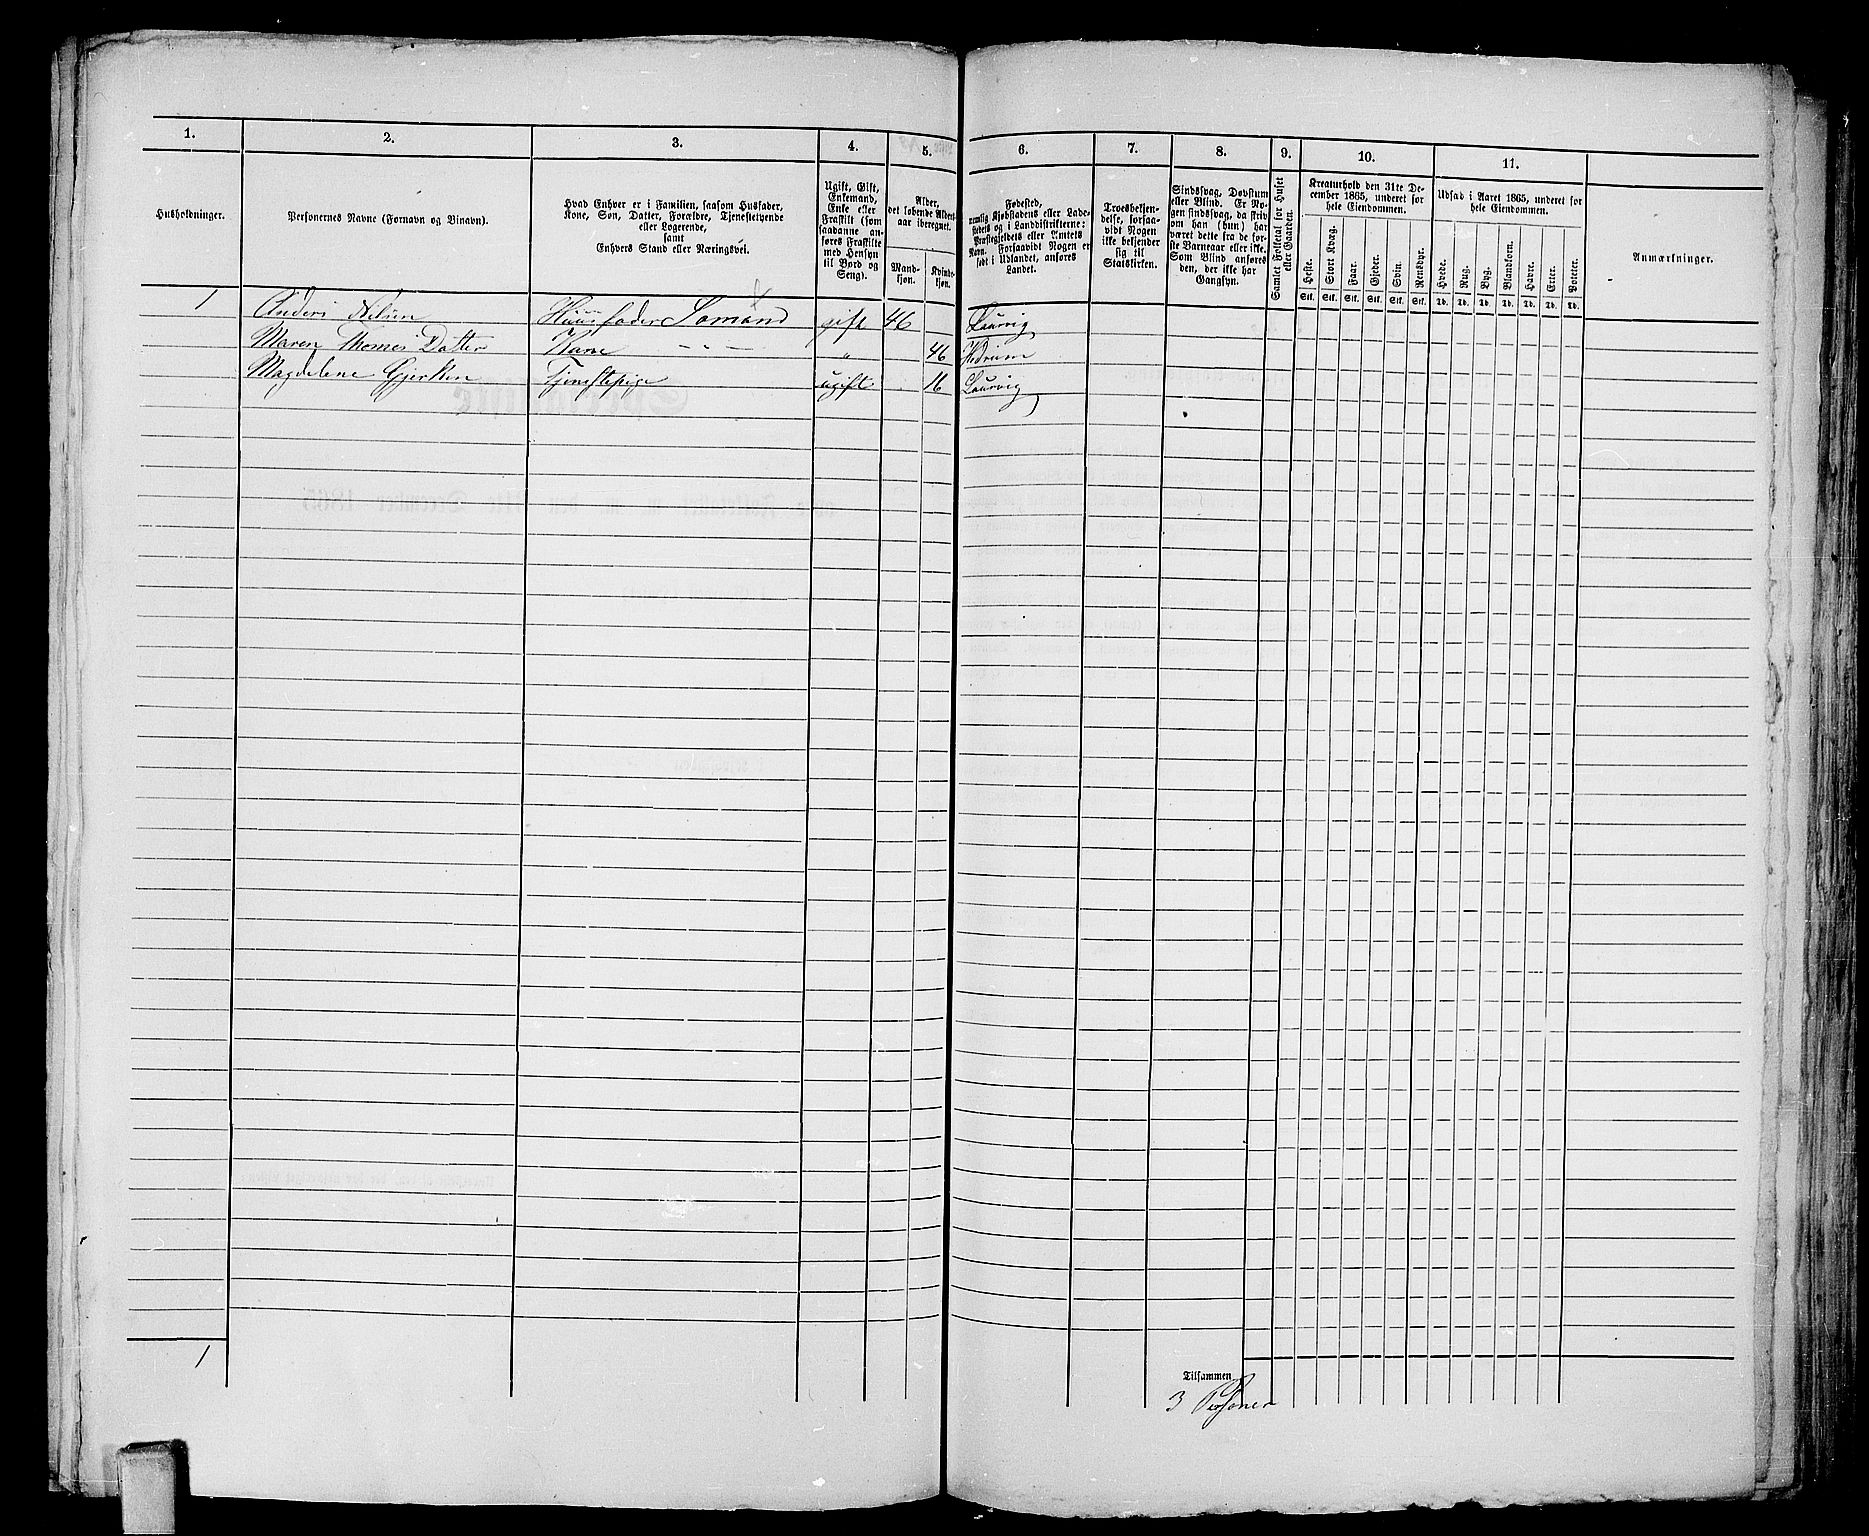 1. 2. 3. 4. 5. 6. 7. 8. 9. 10. 11.
Husholdninger.
Personernes Navne (Fornavn og Binavn).
Hvad Enhver er i Familien, saasom Husfader,
Kone, Søn, Datter, Forældre, Tjenestetyende
eller Logerende,
samt
Enhvers Stand eller Næringsvei.
Ugift, Gift,
Enkemand,
Enke eller
Fraskilt (som
saadanne an-
føres Fraskilte
med Hensyn
til Bord og
Seng).
Alder,
det løbende Alders-
aar iberegnet.
Mand-
kjøn.
Kvinde-
kjøn.
Fødested,
nemlig Kjøbstadens eller Lade-
stedets og i Landdistrikterne:
Præstegjeldets eller Amtets
Navn. Forsaavidt Nogen er
født i Udlandet, anføres
Landet.
Troesbekjen-
delse, forsaa-
vidt Nogen
ikke bekjender
sig til
Statskirken.
Sindssvag, Døvstum
eller Blind. Er No-
gen sindssvag, da skriv
om han (hun) har
været dette fra de før-
ste Barneaar eller ikke.
Som Blind anføres
den, der ikke har
Gangsyn.
Samlet Folketal for Huset
eller Gaarden.
Kreaturhold den 31te De-
cember 1865, underet for
hele Eiendommen.
Heste. Stort Kvæg. Faar. Gjeder. Svin. Rensdyr.
Stk. Stk. Stk. Stk. Stk. Stk.
Udsæd i Aaret 1865, underet for
hele Eiendommen.
Hvede. Rug. Byg. Blandkorn. Havre. Erter. Poteter.
Td. Td. Td. Td. Td. Td. Td.
Anmærkninger.
1 Anders Nilsen Huusfader Sømand gift 46 Laurvig
Maren Thomes Datter Kone " 46 Hedrum
Magdelene Gjerken Tjenestepige ugift 16 Laurvig
1
Tilsammen
3 Personer